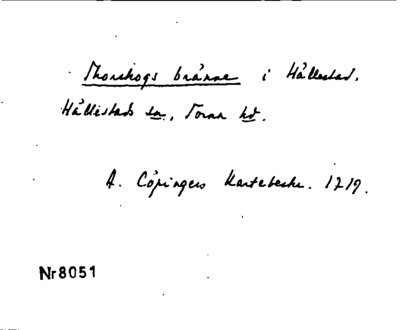 Thorskogs bränne i Hållestad.
Hållestads sn, Torna hd.
A. Cöpingers Kartebeskr. 1719.
Nr8051